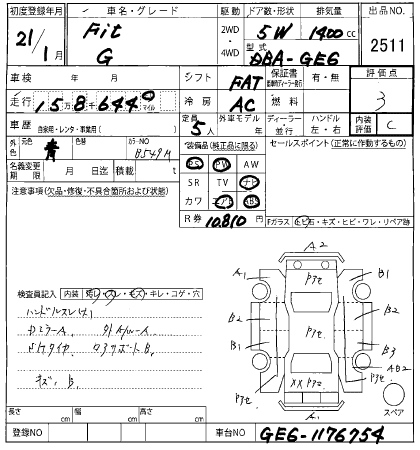 初度登録年月
21/1月
車名・グレード
Fit
G
駆動
2WD
・
4WD
ドア数・形状
5W
排気量
1400cc
型式
DBA-GE6
出品NO
2511
車検 年 月
シフト
FAT
保証書
有・無
評価点
3
走行
158,644.0
マイル
冷房
AC
燃料
車歴
自家用・レンタ・事業用( )
定員
5人
外車モデル
年
ディーラー
並行
ハンドル
左・右
内装評価
C
外色
元色
青
色替
カラーNO
B549M
名義変更期限
月 日迄
積載量
t
装備品(純正品に限る)
PS PW AW
SR TV ナビ
カワ エアB ABS
R券
10,810円
セールスポイント(正常に動作するもの)
注意事項(欠品・修復・不具合箇所および状態)
Fガラス ヒビ石・キズ・ヒビ・ワレ・リペア跡
検査員記入
内装
汚レ・スレ・キズ・キレ・コゲ・穴
ハンドルスレ(大)
キズ B
A2
A1
B1
B2
B2
B1
B3
AB2
Pタセ
Pタセ
Pタセ
Pタセ
XX Pタセ
A1
スペア
長さ cm
幅 cm
高さ cm
登録NO
車台NO
GE6-1176754